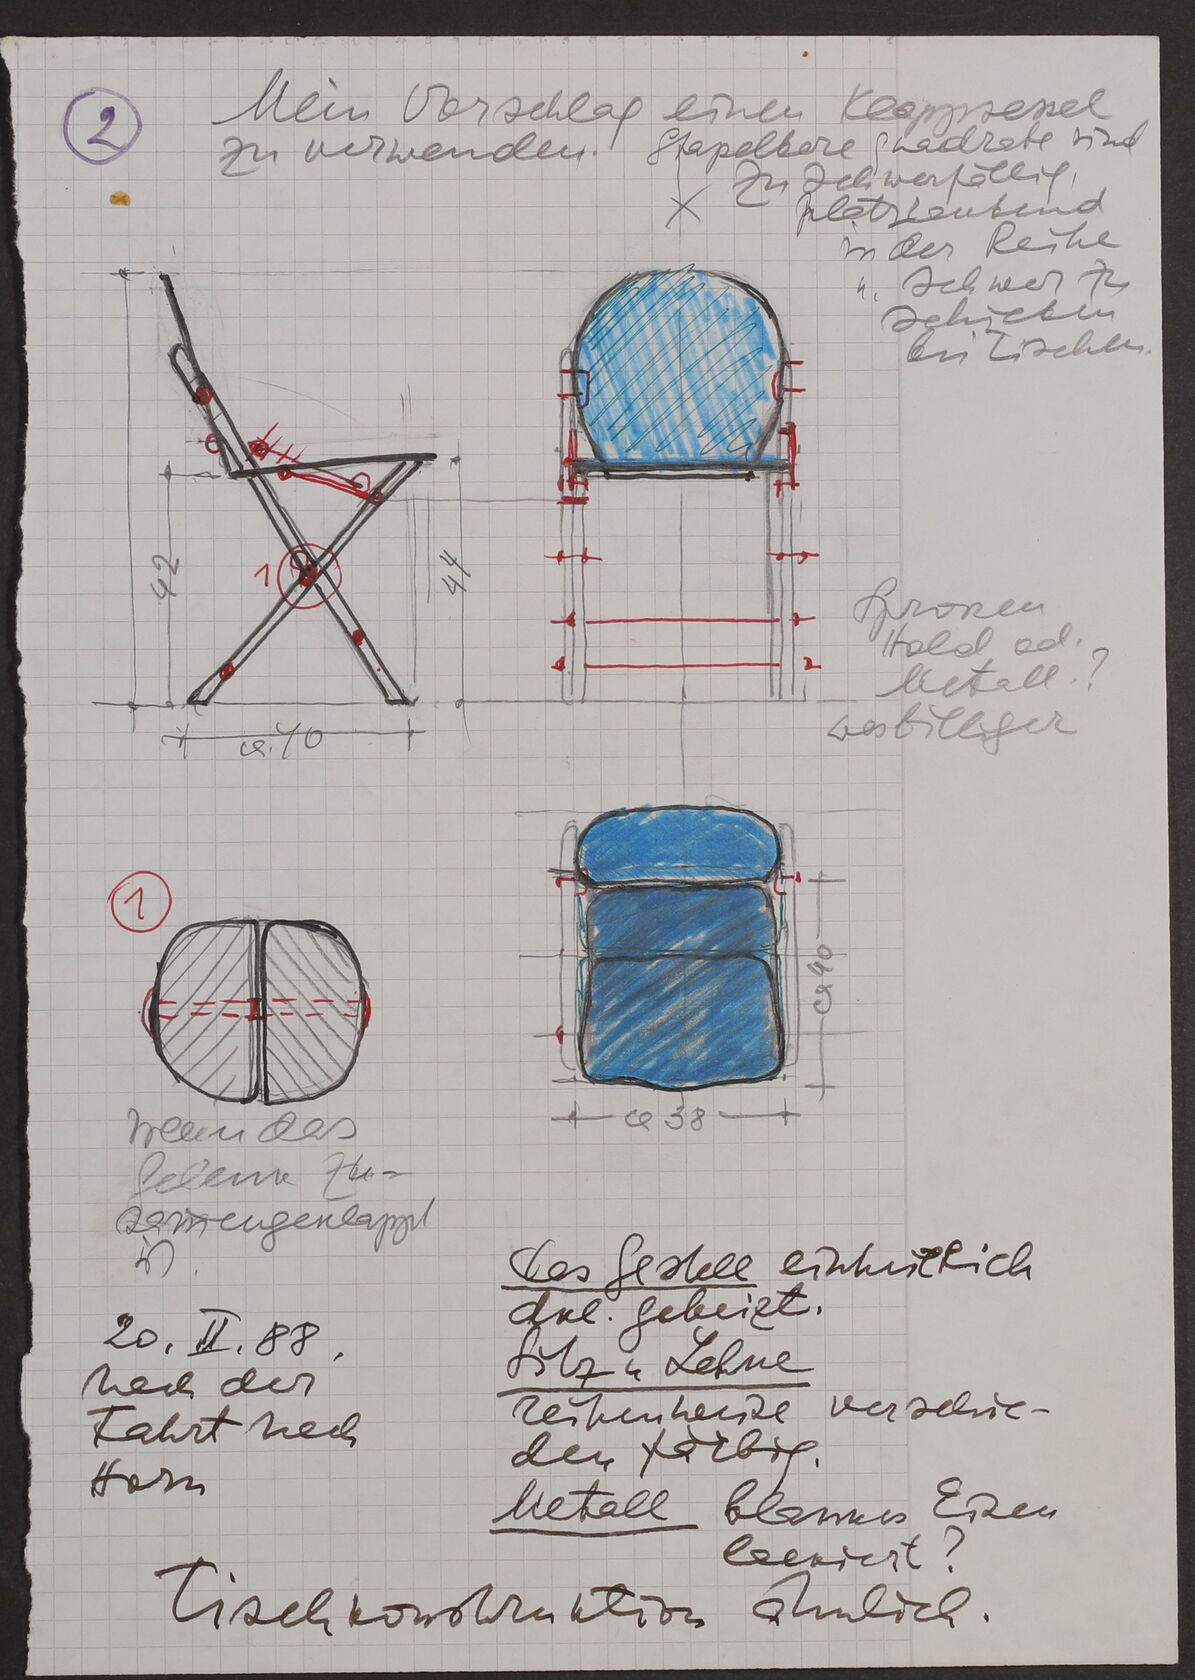 2
Mein Vorschlag einen Klappsessel
zu verwenden. Stapelbare Quadrate sind
zu schwerfällig,
platzraubend
in der Reihe
u. schwer zu
schieben
bei Tischen.
42
1
44
ca. 40
Sprossen
Hold od.
Metall.?
was billiger
1
ca 40
ca 38
Wenn das
Gelenk zu-
sammengeklappt
ist.
20. II. 88.
Nach der
Fahrt nach
Horn
Das Gestell einheitlich
dkl. gebeizt.
Sitz u Lehne
reihenweise verschie-
den färbig.
Metall blankes Eisen
lackiert?
Tischkonstruktion ähnlich.